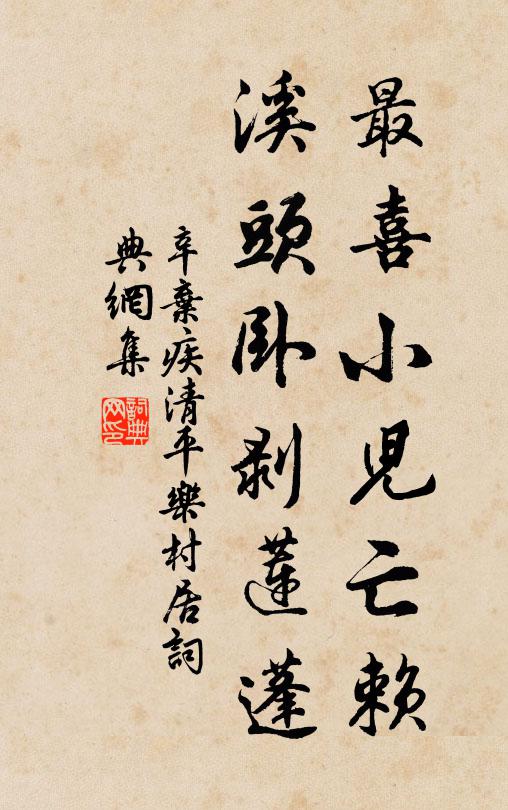 最喜小児亡賴
溪頭卧剥蓮蓬
辛棄疾清平樂村居詞
典網集
詞典
网印